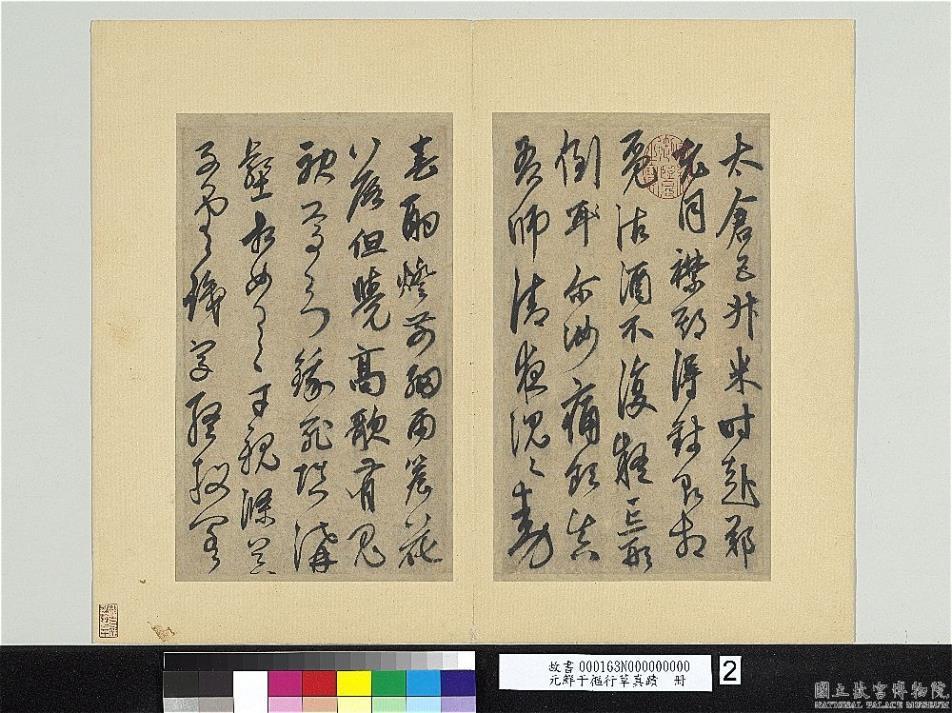 太倉五升米时赴鄭
老同襟期得錢即相
覓沽酒不復疑忘形
倒耳尔汝痛飲真
吾師清夜沉々動
春酌燈前細雨簷花
落但覺高歌有鬼
神焉知餓死填溝
壑相如逸才親滌器
子雲識字終投閣
故書 000163N000000000
元鮮于樞行草真蹟 冊
2
國立故宮博物院
NATIONAL PALACE MUSEUM